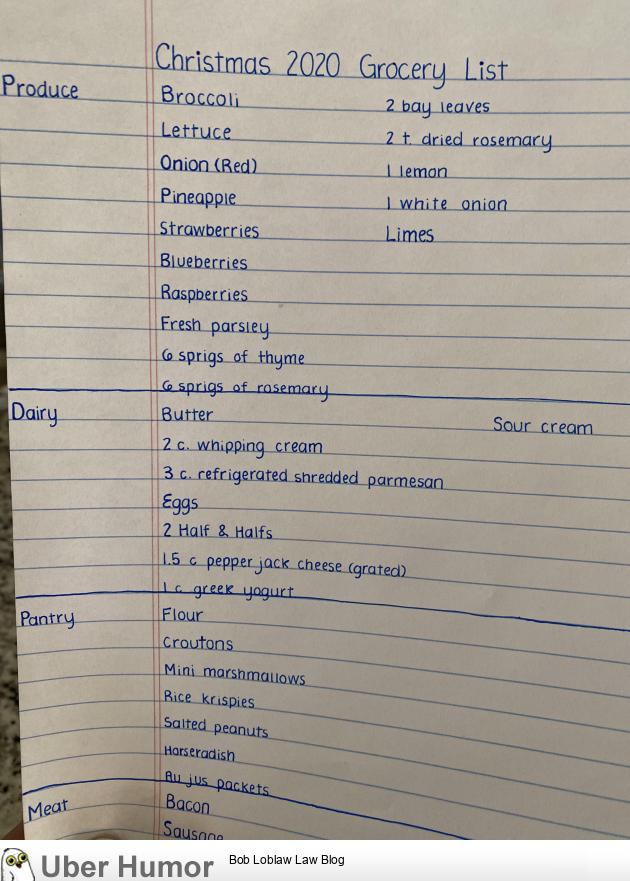 Christmas 2020 Grocery List
Produce
Broccoli
2 bay leaves
Lettuce
2 t. dried rosemary
Onion (Red)
1 lemon
Pineapple
1 white onion
Strawberries
Limes
Blueberries
Raspberries
Fresh parsley
6 sprigs of thyme
6 sprigs of rosemary
Dairy
Butter
Sour cream
2 c. whipping cream
3 c. refrigerated shredded parmesan
Eggs
2 Half & Halfs
1.5 c pepper jack cheese (grated)
1 c. greek yogurt
Pantry
Flour
Croutons
Mini marshmallows
Rice krispies
Salted peanuts
Horseradish
Au jus packets
Meat
Bacon
Sausage
Uber Humor
Bob Loblaw Law Blog